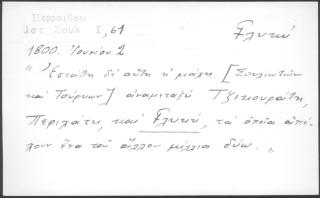 Περραιβου
Ιστ Σουλ Ι,61
Γλυκύ
1800. Ἰουνίου 2
" Ἐστάθη δὲ αὕτη ἡ μάχη [Σουλιωτῶν
καὶ Τούρκων] ἀναμεταξὺ Τζικουράτη,
Περιχάτη, καὶ Γλυκύ, τὰ ὁποῖα ἀπέ-
χουν ἕνα τοῦ ἄλλου μίλλια δύω. "